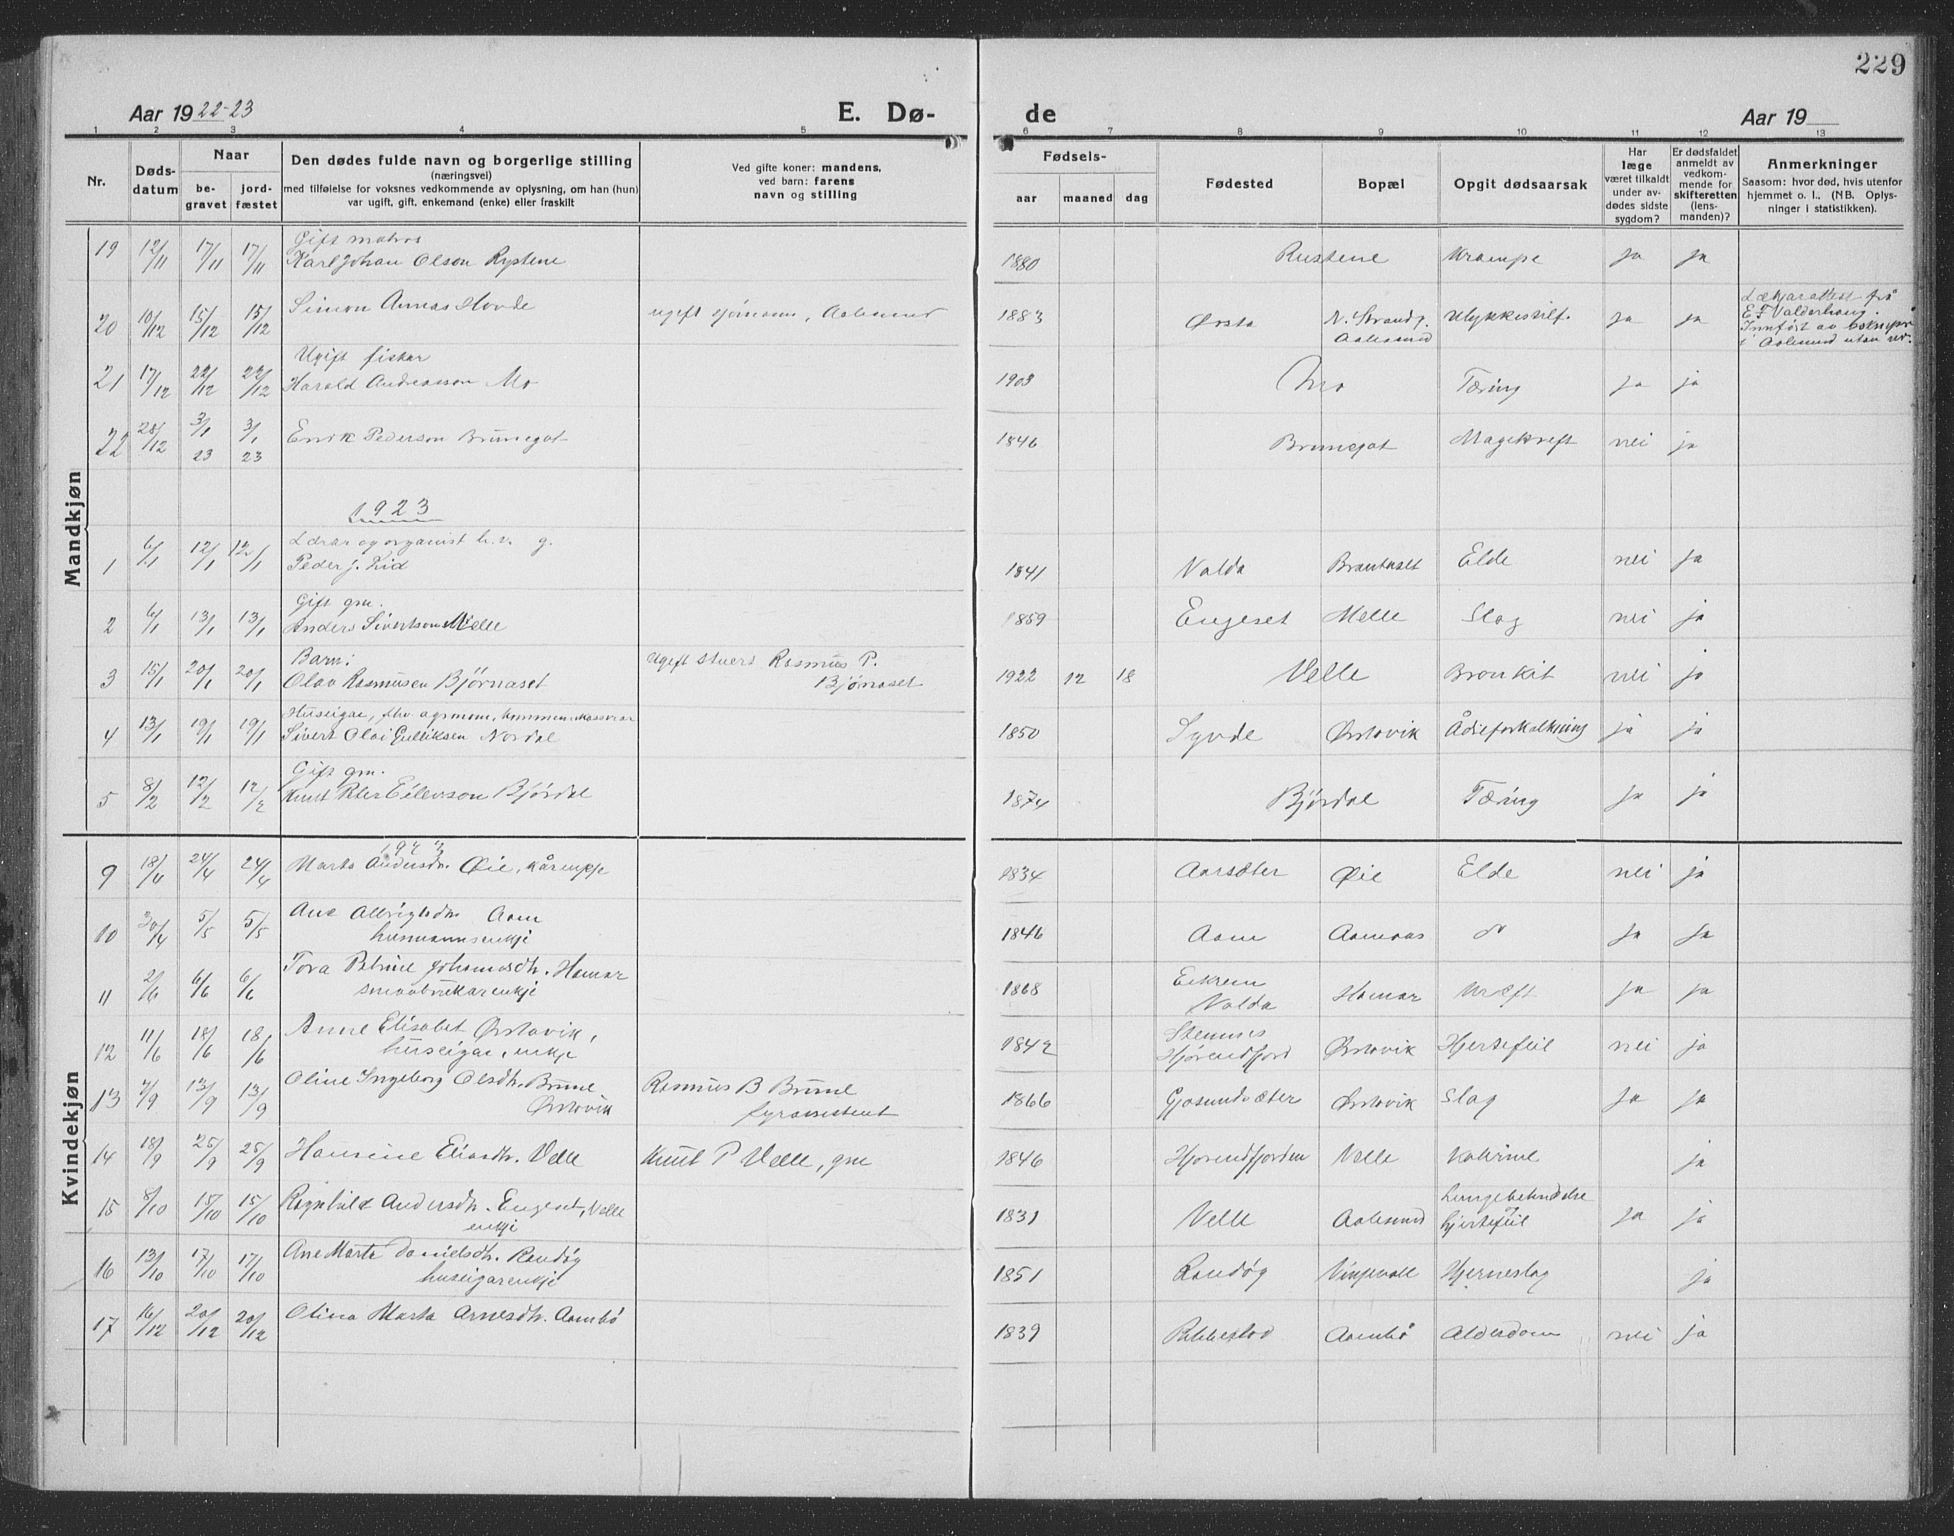 229
Aar 1922-23
E. Dø-
de
Aar 19
1 2 3 4 5 6 7 8 9 10 11 12 13
Nr.
Døds-
datum
Naar
be-
gravet
jord-
fæstet
Den dødes fulde navn og borgerlige stilling
(næringsvei)
med tilføielse for voksnes vedkommende av oplysning, om han (hun)
var ugift, gift, enkemand (enke) eller fraskilt
Ved gifte koner: mandens,
ved barn: farens
navn og stilling
Fødsels-
aar maaned dag
Fødested
Bopæl
Opgit dødsaarsak
Har
læge
været tilkaldt
under av-
dødes sidste
sygdom?
Er dødsfaldet
anmeldt av
vedkom-
mende for
skifteretten
(lens-
manden)?
Anmerkninger
Saasom: hvor død, hvis utenfor
hjemmet o. l.. (NB. Oplys-
ninger i statistikken).
Mandkjøn
Gift matros
19 12/11 17/11 17/11 Karl Johan Olson Rystene 1880 Rustene Krampe ja ja
20 10/12 15/12 15/12 Simon Hovde ugift sjømann, Aalesund 1883 Ørsta N. Strandg. Aalesund Ulykkestilf. ja ja
Lækjarattest frå
E. F. Valderhaug.
Innført av
i Aalesund utan
Ugift fiskar
21 17/12 22/12 22/12 Harald Andreasson Mo 1903 Mo Tæring ja ja
22 28/12 3/1 23 3/1 23 Enok Pederson Brunegot 1846 Brunegot Magekreft nei ja
1923
Lærar og organist
1 6/1 12/1 12/1 Peder J. Lid 1841 Volda Elde nei ja
Gift gm.
2 6/1 13/1 13/1 Anders Sivertson Melle 1859 Engeset Melle Slag nei ja
Barn:
3 15/1 20/1 20/1 Olav Rasmusen Bjørnaset ugift stuert Rasmus P. Bjørnaset 1922 12 18 Velle Bronkit nei ja
Huseigar, fhv.
4 13/1 19/1 19/1 Sivert Olai Gulliksen Nordal 1850 Syvde Ørstavik Ådreforkalkning ja ja
Gift gm.
5 8/2 12/2 12/2 Knut Peter Eilevson Bjørdal 1874 Bjørdal Tæring ja ja
Kvindekjøn
1923
9 18/4 24/4 24/4 Marta Andersdtr. Øie, kårenkje 1834 Aarsæter Øie Elde nei ja
10 30/4 5/5 5/5 Ane Albrigtsdtr. Aam
husmannsenkje 1846 Aam Aamaas do ja ja
11 2/6 6/6 6/6 Tora Petrine Johannesdtr. Hamar
smaabrukarenkje 1868 Eikrem Volda Hamar Kræft ja ja
12 11/6 18/6 18/6 Anne Elisabet Ørstavik,
huseigar, enkje 1842 Stennes Hjørendfjord Ørstavik Hjertefeil nei ja
13 7/9 13/9 13/9 Oline Ingeborg Olsdtr. Brune
Ørstavik Rasmus B Brune
fyrassistent 1866 Gjøsundsæter Ørstavik Slag ja ja
14 18/9 25/9 25/9 Hansine Eliasdtr. Velle Knut P Velle, gm 1846 Hjørendfjorden Velle ja
15 8/10 15/10 15/10 Ragnhild Andersdtr. Engeset, Velle
enkje 1831 Velle Aalesund Lungebetændelse
hjertefeil ja ja
16 13/10 17/10 17/10 Ane Marta Danielsdtr. Raudøy
huseigarenkje 1851 Raudøy Vinjevoll Hjerneslag ja
17 16/12 20/12 20/12 Olina Marta Arnesdtr. Aambø 1839 Rebbestad Aambø Alderdom nei ja